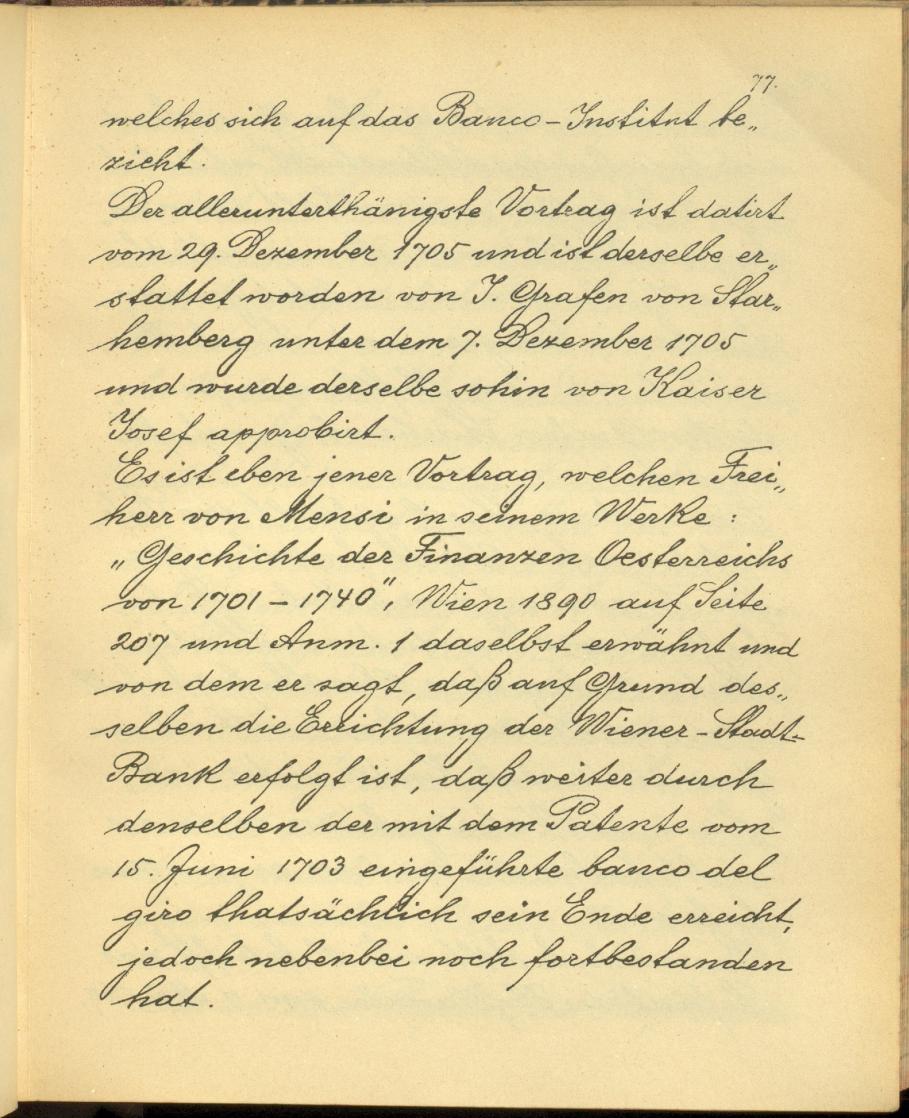 77.
welches sich auf das Banco-Institut be„
zieht.
Der allerunterthänigste Vortrag ist datirt
vom 29. Dezember 1705 und ist derselbe er„
stattet worden von J. Grafen von Star„
hemberg unter dem 7. Dezember 1705
und wurde derselbe sohin von Kaiser
Josef approbirt.
Es ist eben jener Vortrag, welchen Frei„
herr von Mensi in seinem Werke :
„Geschichte der Finanzen Oesterreichs
von 1701 – 1740", Wien 1890 auf Seite
207 und Anm. 1 daselbst erwähnt und
von dem er sagt, daß auf Grund des„
selben die Errichtung der Wiener-Stadt-
Bank erfolgt ist, daß weiter durch
denselben der mit dem Patente vom
15. Juni 1703 eingeführte banco del
giro thatsächlich sein Ende erreicht,
jedoch nebenbei noch fortbestanden
hat.